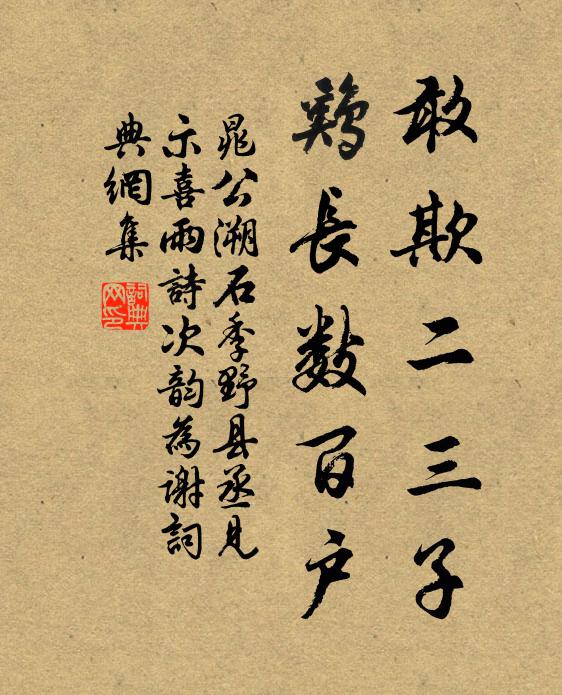 敢欺二三子
鷄長數百户
晁公溯石季野县丞見
示喜雨詩次韵為謝詞
典網集
詞典网印